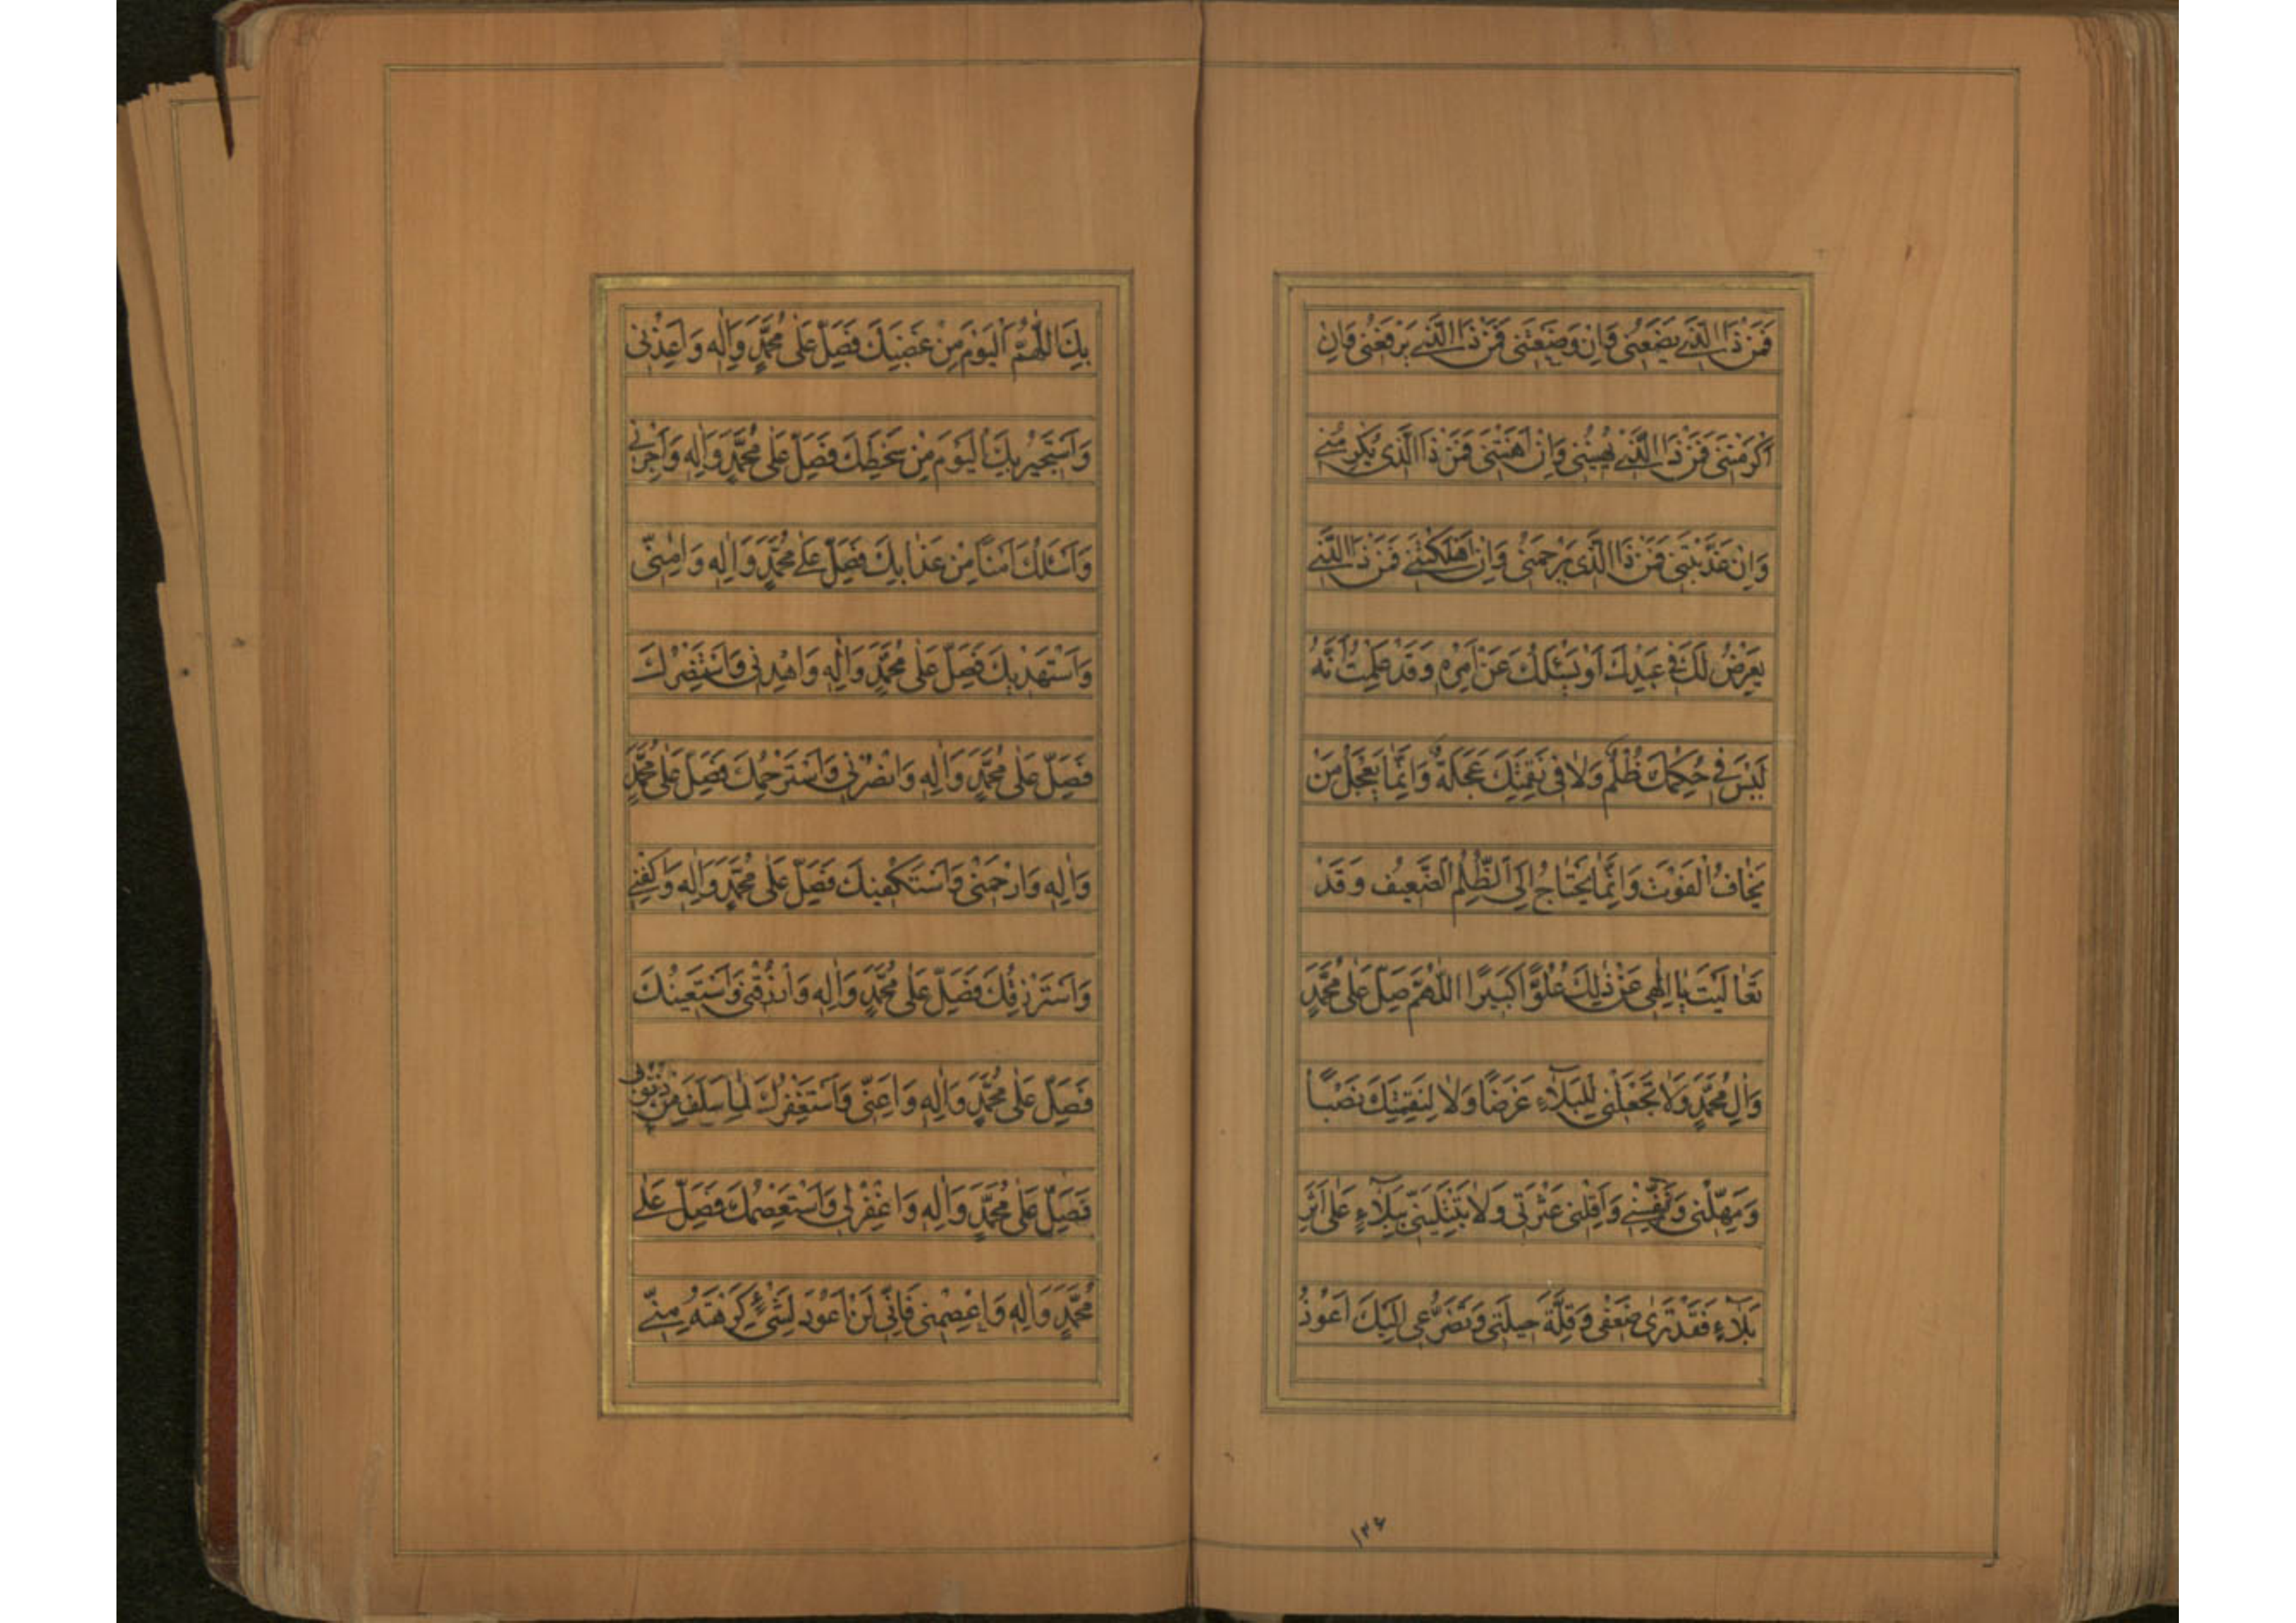 فَمَنْ ذَا الَّذِي يَضَعُنِي وَاِنْ وَضَعْتَنِي فَمَنْ ذَا الَّذِي يَرْفَعُنِي وَاِنْ
اَكْرَمْتَنِي فَمَنْ ذَا الَّذِي يُهِينُنِي وَاِنْ اَهَنْتَنِي فَمَنْ ذَا الَّذِي يُكْرِمُنِي
وَاِنْ عَذَّبْتَنِي فَمَنْ ذَا الَّذِي يَرْحَمُنِي وَاِنْ اَهْلَكْتَنِي فَمَنْ ذَا الَّذِي
يَعْرِضُ لَكَ فِي عَبْدِكَ اَوْ يَسْئَلُكَ عَنْ اَمْرِهِ وَقَدْ عَلِمْتُ اَنَّهُ
لَيْسَ فِي حُكْمِكَ ظُلْمٌ وَلَا فِي نَقِمَتِكَ عَجَلَةٌ وَاِنَّمَا يَعْجَلُ مَنْ
يَخَافُ الْفَوْتَ وَاِنَّمَا يَحْتَاجُ اِلَى الظُّلْمِ الضَّعِيفُ وَقَدْ
تَعَالَيْتَ يَا اِلٰهِي عَنْ ذٰلِكَ عُلُوًّا كَبِيرًا اَللّٰهُمَّ صَلِّ عَلٰى مُحَمَّدٍ
وَاٰلِ مُحَمَّدٍ وَلَا تَجْعَلْنِي لِلْبَلَاءِ غَرَضًا وَلَا لِنَقِمَتِكَ نَصْبًا
وَمَهِّلْنِي وَنَفِّسْنِي وَاَقِلْنِي عَثْرَتِي وَلَا تَبْتَلِيَنِّي بِبَلَاءٍ عَلٰى اَثَرِ
بَلَاءٍ فَقَدْ تَرٰى ضَعْفِي وَقِلَّةَ حِيلَتِي وَتَضَرُّعِي اِلَيْكَ اَعُوذُ
۱۳۶
بِكَ اللّٰهُمَّ الْيَوْمَ مِنْ غَضَبِكَ فَصَلِّ عَلٰى مُحَمَّدٍ وَاٰلِهِ وَاَعِذْنِي
وَاَسْتَجِيرُ بِكَ الْيَوْمَ مِنْ سَخَطِكَ فَصَلِّ عَلٰى مُحَمَّدٍ وَاٰلِهِ وَاَجِرْنِي
وَاَسْئَلُكَ اَمْنًا مِنْ عَذَابِكَ فَصَلِّ عَلٰى مُحَمَّدٍ وَاٰلِهِ وَاٰمِنِّي
وَاَسْتَهْدِيكَ فَصَلِّ عَلٰى مُحَمَّدٍ وَاٰلِهِ وَاهْدِنِي وَاَسْتَنْصِرُكَ
فَصَلِّ عَلٰى مُحَمَّدٍ وَاٰلِهِ وَانْصُرْنِي وَاَسْتَرْحِمُكَ فَصَلِّ عَلٰى مُحَمَّدٍ
وَاٰلِهِ وَارْحَمْنِي وَاَسْتَكْفِيكَ فَصَلِّ عَلٰى مُحَمَّدٍ وَاٰلِهِ وَاكْفِنِي
وَاَسْتَرْزِقُكَ فَصَلِّ عَلٰى مُحَمَّدٍ وَاٰلِهِ وَارْزُقْنِي وَاَسْتَعِينُكَ
فَصَلِّ عَلٰى مُحَمَّدٍ وَاٰلِهِ وَاَعِنِّي وَاَسْتَغْفِرُكَ لِمَا سَلَفَ مِنْ ذُنُوبِي
فَصَلِّ عَلٰى مُحَمَّدٍ وَاٰلِهِ وَاغْفِرْ لِي وَاَسْتَعْصِمُكَ فَصَلِّ عَلٰى
مُحَمَّدٍ وَاٰلِهِ وَاعْصِمْنِي فَاِنِّي لَنْ اَعُودَ لِشَيْءٍ كَرِهْتَهُ مِنِّي